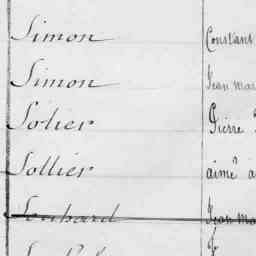 Simon Constant
Simon Jean mar
Solier Pierre
Sollier aimé a
Jean Ma